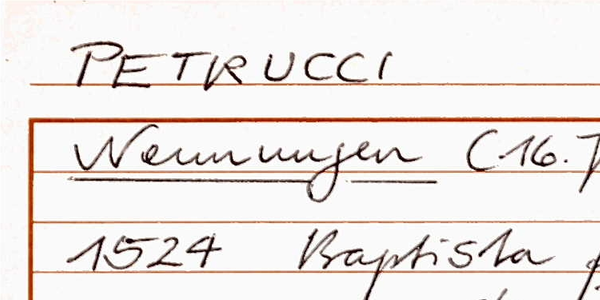 PETRUCCI
Nennungen (16. J
1524 Baptista